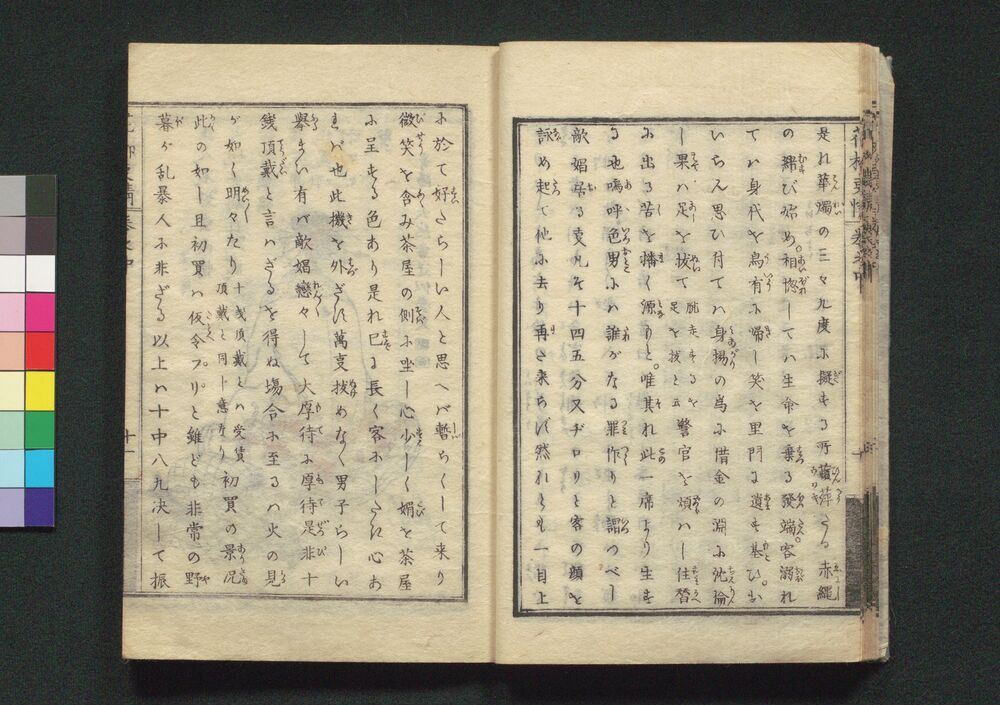 是れ華燭の三々九度に擬する所蘭蕣たる赤縄
の綢び始め。相惚しては生命を棄る発端。客溺れ
ては身代を烏有に帰し笑を里門に遺す基ひ。お
いらん思ひ付ては身揚の為に借金の淵に沈淪
し果は足を抜て脱走するを足を抜と云警官を煩はし住替
に出る苦を播く源りと。唯其れ此一席より生ず
る也嗚呼色男には誰がなる罪作りと謂つべし
敵娼居る事凡そ十四五分又ヂロリと客の顔を
詠め起て他に去り再さ来らず然れども一目上
に於て好さらしい人と思へば暫らくして来り
微笑を含み茶屋の側に坐し心少しく媚を茶屋
に呈する色あり是れ已に長く客にしたき心あ
ればや也此機を外ざに萬事抜めなく男子らしい
挙まい有ば敵娼戀々して大厚待に厚待是非十
銭頂戴と言はざるを得ぬ場合に至るは火の見
が如く明々たり十銭頂戴とは受賃頂戴と同じ意なり初買の景况
此の如し且初買は仮令フリと雖ども非常の野
暮が乱暴人に非ざる以上は十中八九決して振